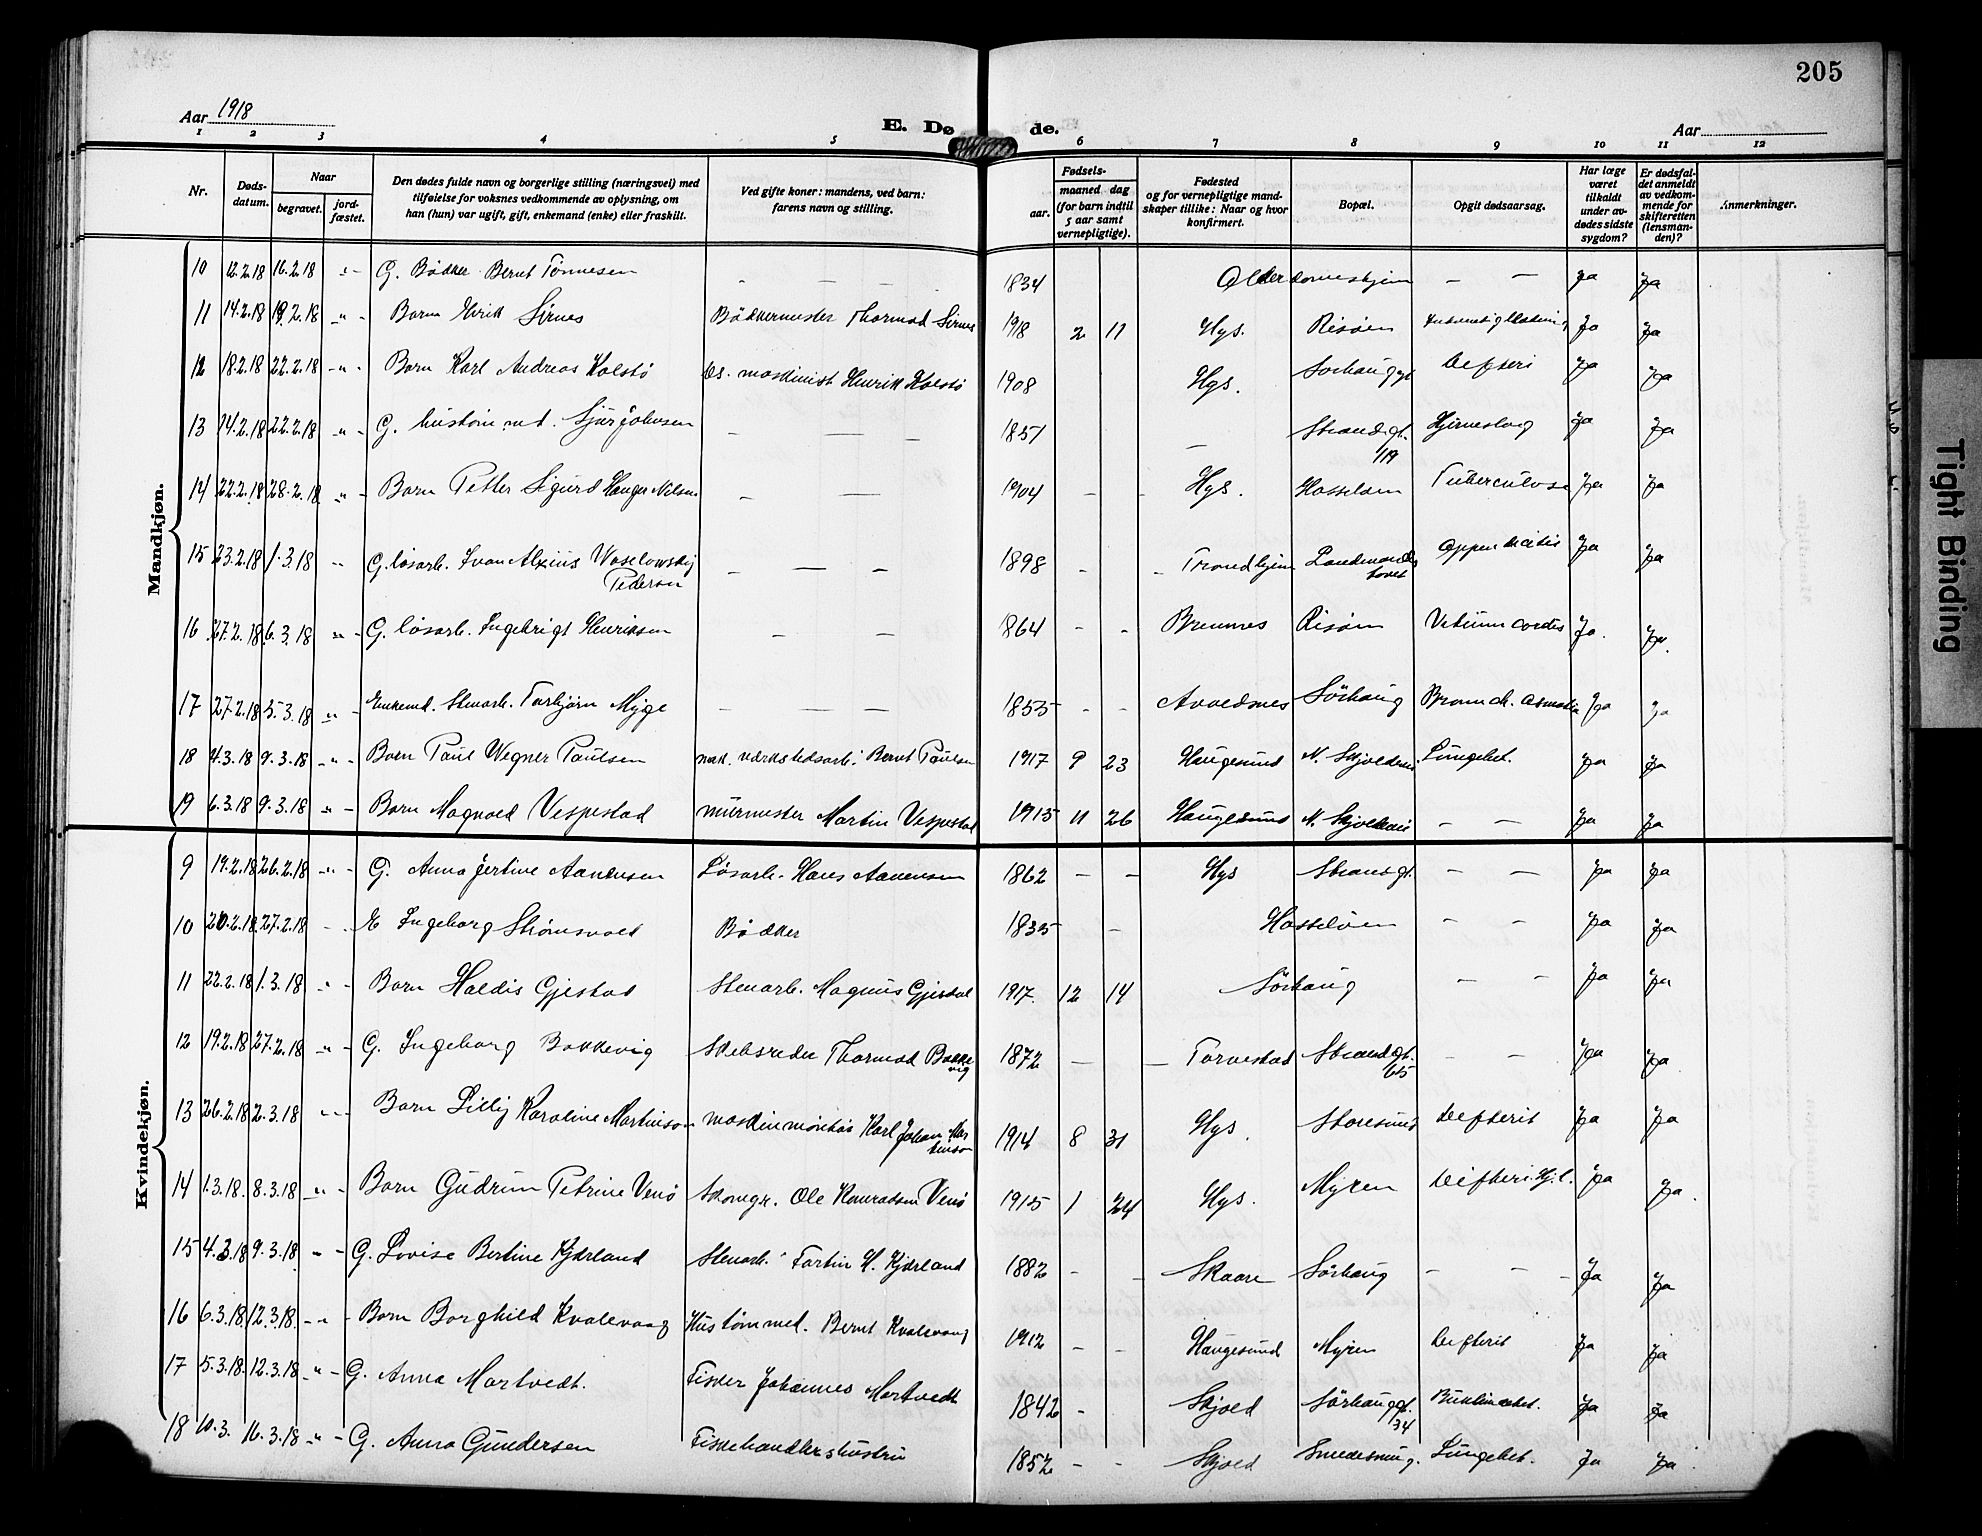 205
Aar 1918
E. Dø de.
Aar
1 2 3 4 5 6 7 8 9 10 11 12
Nr.
Døds-datum.
Naar
begravet.
jord-fæstet.
Den dødes fulde navn og borgerlige stilling (næringsvei) med
tilføielse for voksnes vedkommende av oplysning, om
han (hun) var ugift, gift, enkemand (enke) eller fraskilt.
Ved gifte koner: mandens, ved barn:
farens navn og stilling.
Fødsels-
aar.
maaned dag
(for barn indtil
5 aar samt
vernepligtige).
Fødested
og for vernepligtige mand-
skaper tillike: Naar og hvor
konfirmert.
Bopæl.
Opgit dødsaarsag.
Har læge
været
tilkaldt
under av-
dødes sidste
sygdom?
Er dødsfal-
det anmeldt
av vedkom-
mende for
skifteretten
(lensman-
den)?
Anmerkninger.
Mandkjøn.
10 12.2.18 16.2.18 -"- G. Bødker Bernt Tönnesen - - - 1834 Alderdomshjem - - Ja Ja
11 14.2.18 19.2.18 -"- Barn Eirik Sirnes Bødkermester Thormod Sirnes 1918 2 11 Hgs. Risøen Ja Ja
12 18.2.18 22.2.18 -"- Barn Karl Andreas Kolstö maskinist Henrik Kolstö 1908 Hgs. Sørhauggt Defteri Ja Ja
13 14.2.18 22.2.18 -"- G. hustømmed. Sjur Johnsen - - - 1851 - Strandgt. 119 Hjerneslag Ja Ja
14 22.2.18 28.2.18 -"- Barn Petter Sigurd Hauger Nilsen - - 1904 - - Hgs. Hasseløen Tuberculose Ja Ja
15 23.2.18 1.3.18 -"- G. løsarb. Ivan Alxius Waselowskij
Pedersen - - - 1898 - - Trondhjem Appendicitis Ja Ja
16 27.2.18 6.3.18 -"- G. løsarb. Ingebrigt Henriksen - - 1864 - - Bremnes Risøen Vitium cordis Ja. Ja.
17 27.2.18 5.3.18 -"- Enkemd. Stenarb. Torbjørn Myge - - - 1855 - - Avaldsnes Sörhaug Bronch. asmatia Ja Ja
18 4.3.18 9.3.18 -"- Barn Paul Wegner Paulsen mek. værkstedsarb. Bernt Paulsen 1917 9 23 Haugesund N. Skjoldavei Lungebet. Ja Ja
19 6.3.18 9.3.18 -"- Barn Magnvald Vespestad murmester Martin Vespestad 1915 11 26 Haugesund N. Skjoldavei - - Ja Ja
Kvindekjøn.
9 19.2.18 26.2.18 -"- G. Anna Jertine Aanensen Løsarb. Hans Aanensen 1862 - - Hgs Strandgt. - - Ja Ja
10 20.2.18 27.2.18 - - E Ingeborg Strømsvold Bødker 1835 - Hasseløen - - Ja Ja
11 22.2.18 1.3.18 -"- Barn Haldis Gjestad Stenarb. Magnus Gjesdal 1917. 12 14 Sörhaug - - Ja Ja
12 19.2.18 27.2.18 -"- G. Ingeborg Bakkevig Skibsreder Thormod Bakke
vig 1872 - - Torvestad Strandgt.
165 - - Ja Ja
13 26.2.18 2.3.18 -"- Barn Lilly Karoline Martinson maskinmontør Karl Johan Mar
tinson 1914 8 31 Hgs. Storesund Defterit Ja Ja
14 1.3.18. 8.3.18 -"- Barn Gudrun Petrine Venö Skomgr. Ole Konradsen Venö 1915 1 24 Hgs. Myren Difteri Ja Ja.
15 4.3.18 9.3.18 -"- G. Lovise Bertine Kjærland Stenarb. H. Kjærland 1882 - - Skaare Sörhaug - - - Ja Ja
16 6.3.18. 12.3.18. -"- Barn Borghild Kvalevaag Hustømmed. Bernt Kvalevaag 1912 - - Haugesund Myren Difterit Ja Ja
17 5.3.18. 12.3.18 -"- G. Anna Mortvedt. Fisker Johannes Mortvedt 1842 - Skjold Sörhauggt.
34 Ja Ja
18 10.3. 16.3.18 -"- G. Anna Gundersen Fiskehandlershustru 1852 - - Skjold Smedesmug. Lungebet. Ja Ja
Tight Binding